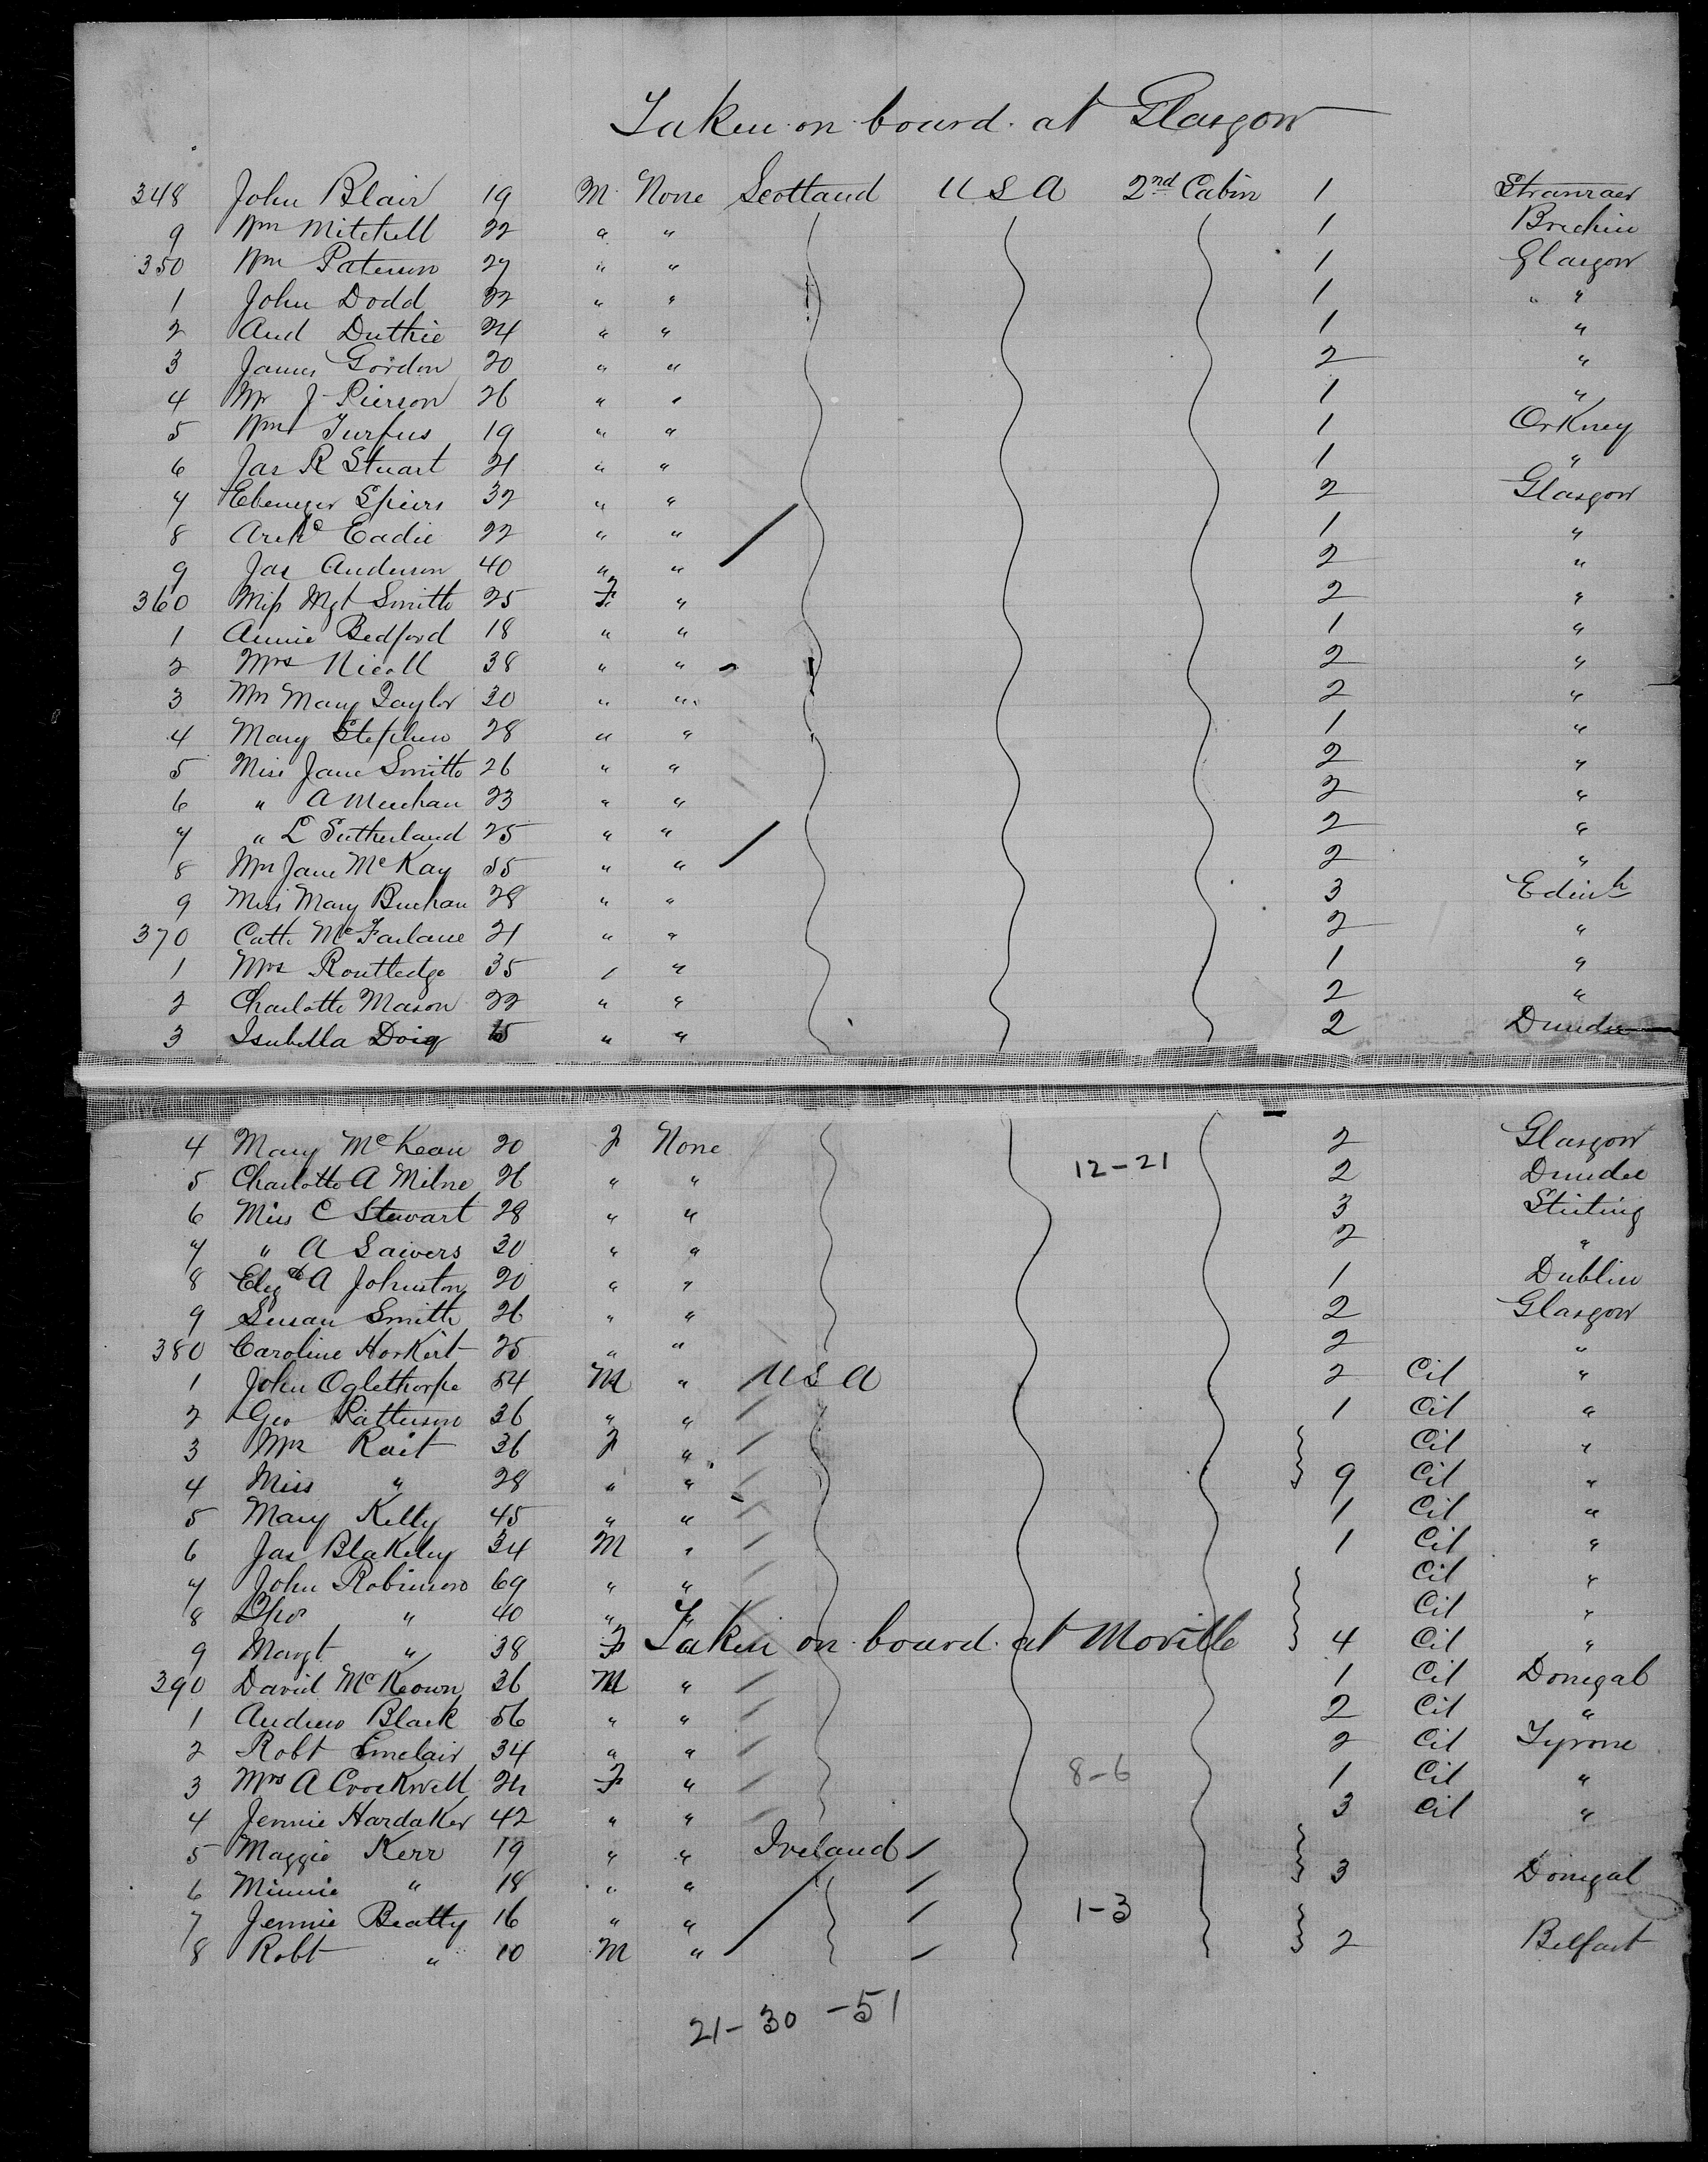 Taken on board at Glasgow
348 John Blair 19 M None Scotland U S A 2nd Cabin 1 Stranraer
9 Wm Mitchell 22 " " 1 Brechin
350 Wm Paterson 27 " " 1 Glasgow
1 John Dodd 22 " " 1 " "
2 And Duthie 24 " " 1 "
3 James Gordon 20 " " 2 "
4 Mr J Pierson 26 " " 1 "
5 Wm Turfus 19 " " 1 Orkney
6 Jas R Stuart 21 " " 1 "
7 Ebenezer Spiers 32 " " 2 Glasgow
8 Archd Eadie 22 " " 1 "
9 Jas Anderson 40 " " 2 "
360 Miss Mgt Smith 25 F " 2 "
1 Annie Bedford 18 " " 1 "
2 Mrs Nicoll 38 " " 2 "
3 Mrs Mary Taylor 30 " " 2 "
4 Mary Stephen 28 " " 1 "
5 Miss Jane Smith 26 " " 2 "
6 " A Meechan 23 " " 2 "
7 " L Sutherland 25 " " 2 "
8 Mrs Jane McKay 55 " " 2 "
9 Miss Mary Buchan 28 " " 3 Edinh
370 Cath McFarlane 21 " " 2 "
1 Mrs Routledge 35 " " 1 "
2 Charlotte Mason 22 " " 2 "
3 Isabella Doig 15 " " 2 Dundee
4 Mary McKean 20 F None 2 Glasgow
5 Charlotte A Milne 26 " " 12-21 2 Dundee
6 Miss C Stewart 28 " " 3 Stirling
7 " A Saivers 30 " " 2 "
8 Elizth A Johnston 20 " " 1 Dublin
9 Susan Smith 26 " " 2 Glasgow
380 Caroline Horkirt 25 " " 2 "
1 John Oglethorpe 54 M " U S A 2 Cit "
2 Geo Patterson 36 " " 1 Cit "
3 Mrs Rait 36 F " Cit "
4 Miss " 28 " " 9 Cit "
5 Mary Kelly 45 " " 1 Cit "
6 Jas Blakeley 34 M " 1 Cit "
7 John Robinson 69 " " Cit "
8 Thos " 40 " " Cit "
9 Margt " 38 F 4 Cit "
Taken on board at Moville
390 David McKeown 36 M " 1 Cit Donegal
1 Andrew Black 56 " " 2 Cit "
2 Robt Sinclair 34 " " 2 Cit Tyrone
3 Mrs A Crockwell 24 F " 8-6 1 Cit "
4 Jennie Hardaker 42 " " 3 Cit "
5 Maggie Kerr 19 " " Ireland
6 Minnie " 18 " " 3 Donegal
7 Jennie Beatty 16 " " 1-3
8 Robt " 10 M " 2 Belfast
21-30-51